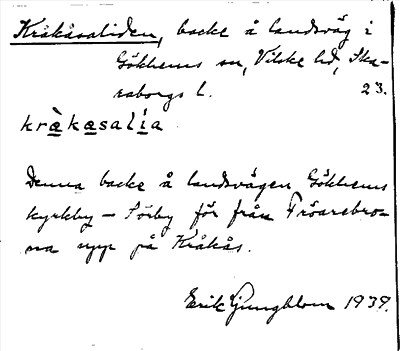 Kråkåsaliden, backe å landsväg i
Gökhems sn, Vilske hd, Ska-
raborgs l. 23.
kràkasalia
Denna backe å landsvägen Gökhems
kyrkby - Sörby för från Fröarebro-
na upp på Kråkås.
Erik Ljungblom 1939.